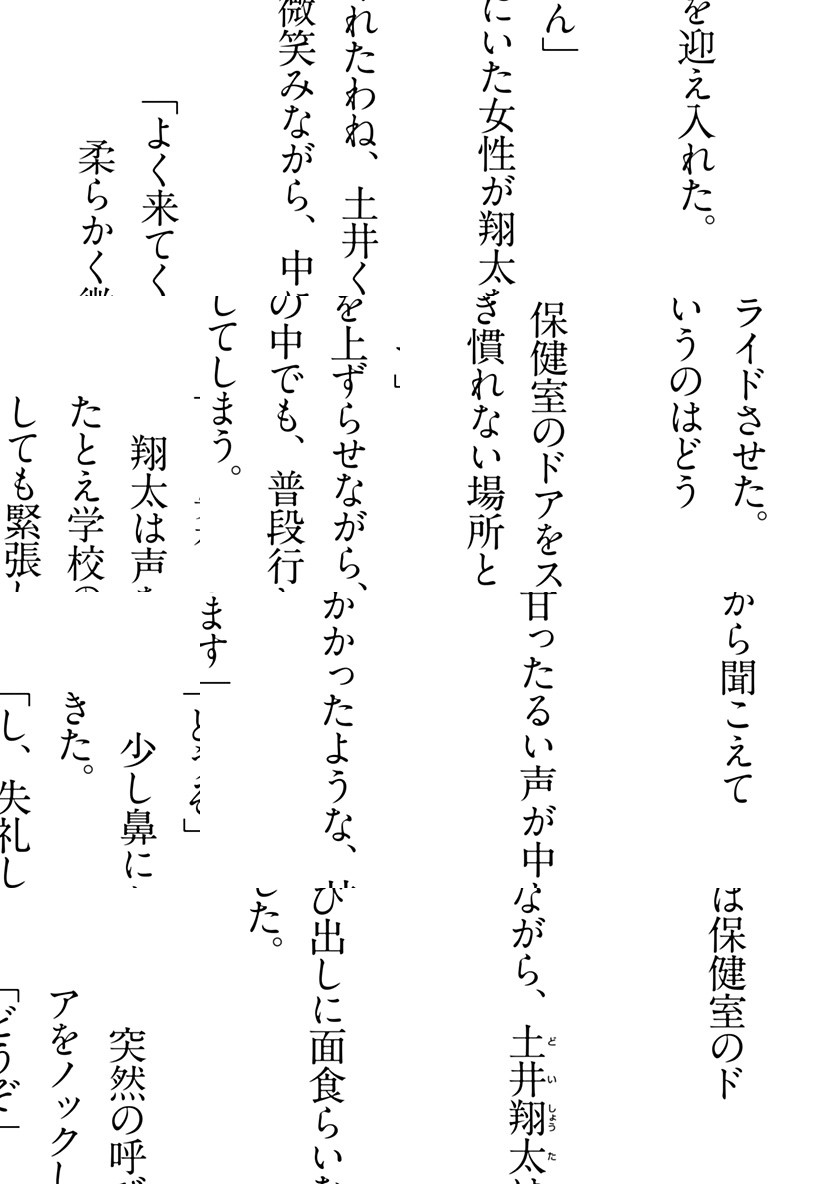 突然の呼び出しに面食らいながら、土井翔太は保健室のド
アをノックした。
「どうぞ」
少し鼻にかかったような、甘ったるい声が中から聞こえて
きた。
「し、失礼します」
翔太は声を上ずらせながら、保健室のドアをスライドさせた。
たとえ学校の中でも、普段行き慣れない場所というのはどう
しても緊張してしまう。
「よく来てくれたわね、土井くん」
柔らかく微笑みながら、中にいた女性が翔太を迎え入れた。